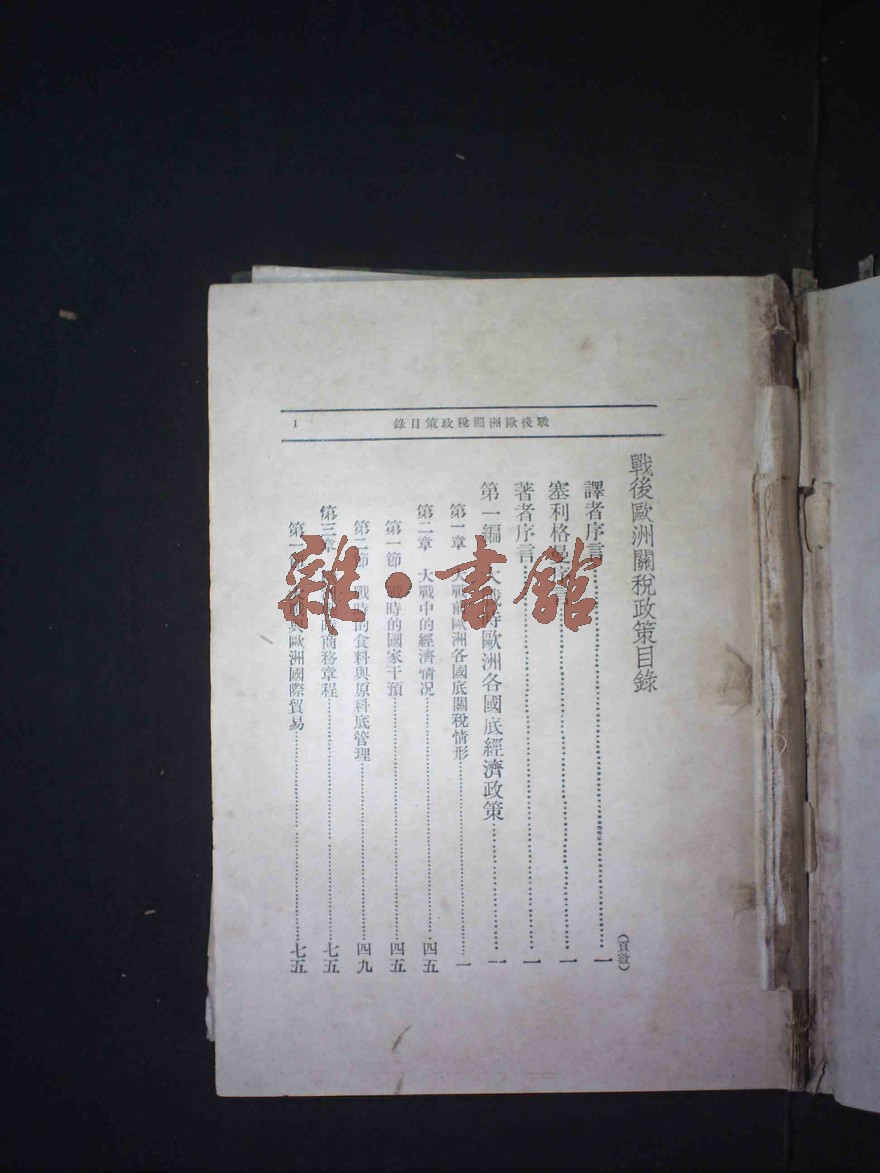 戰後歐洲關稅政策目錄 1
戰後歐洲關稅政策目錄
(頁數)
譯者序言 一
塞利格曼 一
著者序言 一
第一編 大戰時歐洲各國底經濟政策 一
第一章 大戰前歐洲各國底關稅情形 一
第二章 大戰中的經濟情况 四五
第一節 戰時的國家干預 四五
第二節 戰時的食料與原料底管理 四九
第三章 商務章程 七五
第一節 與歐洲國際貿易 七五
雜·書館